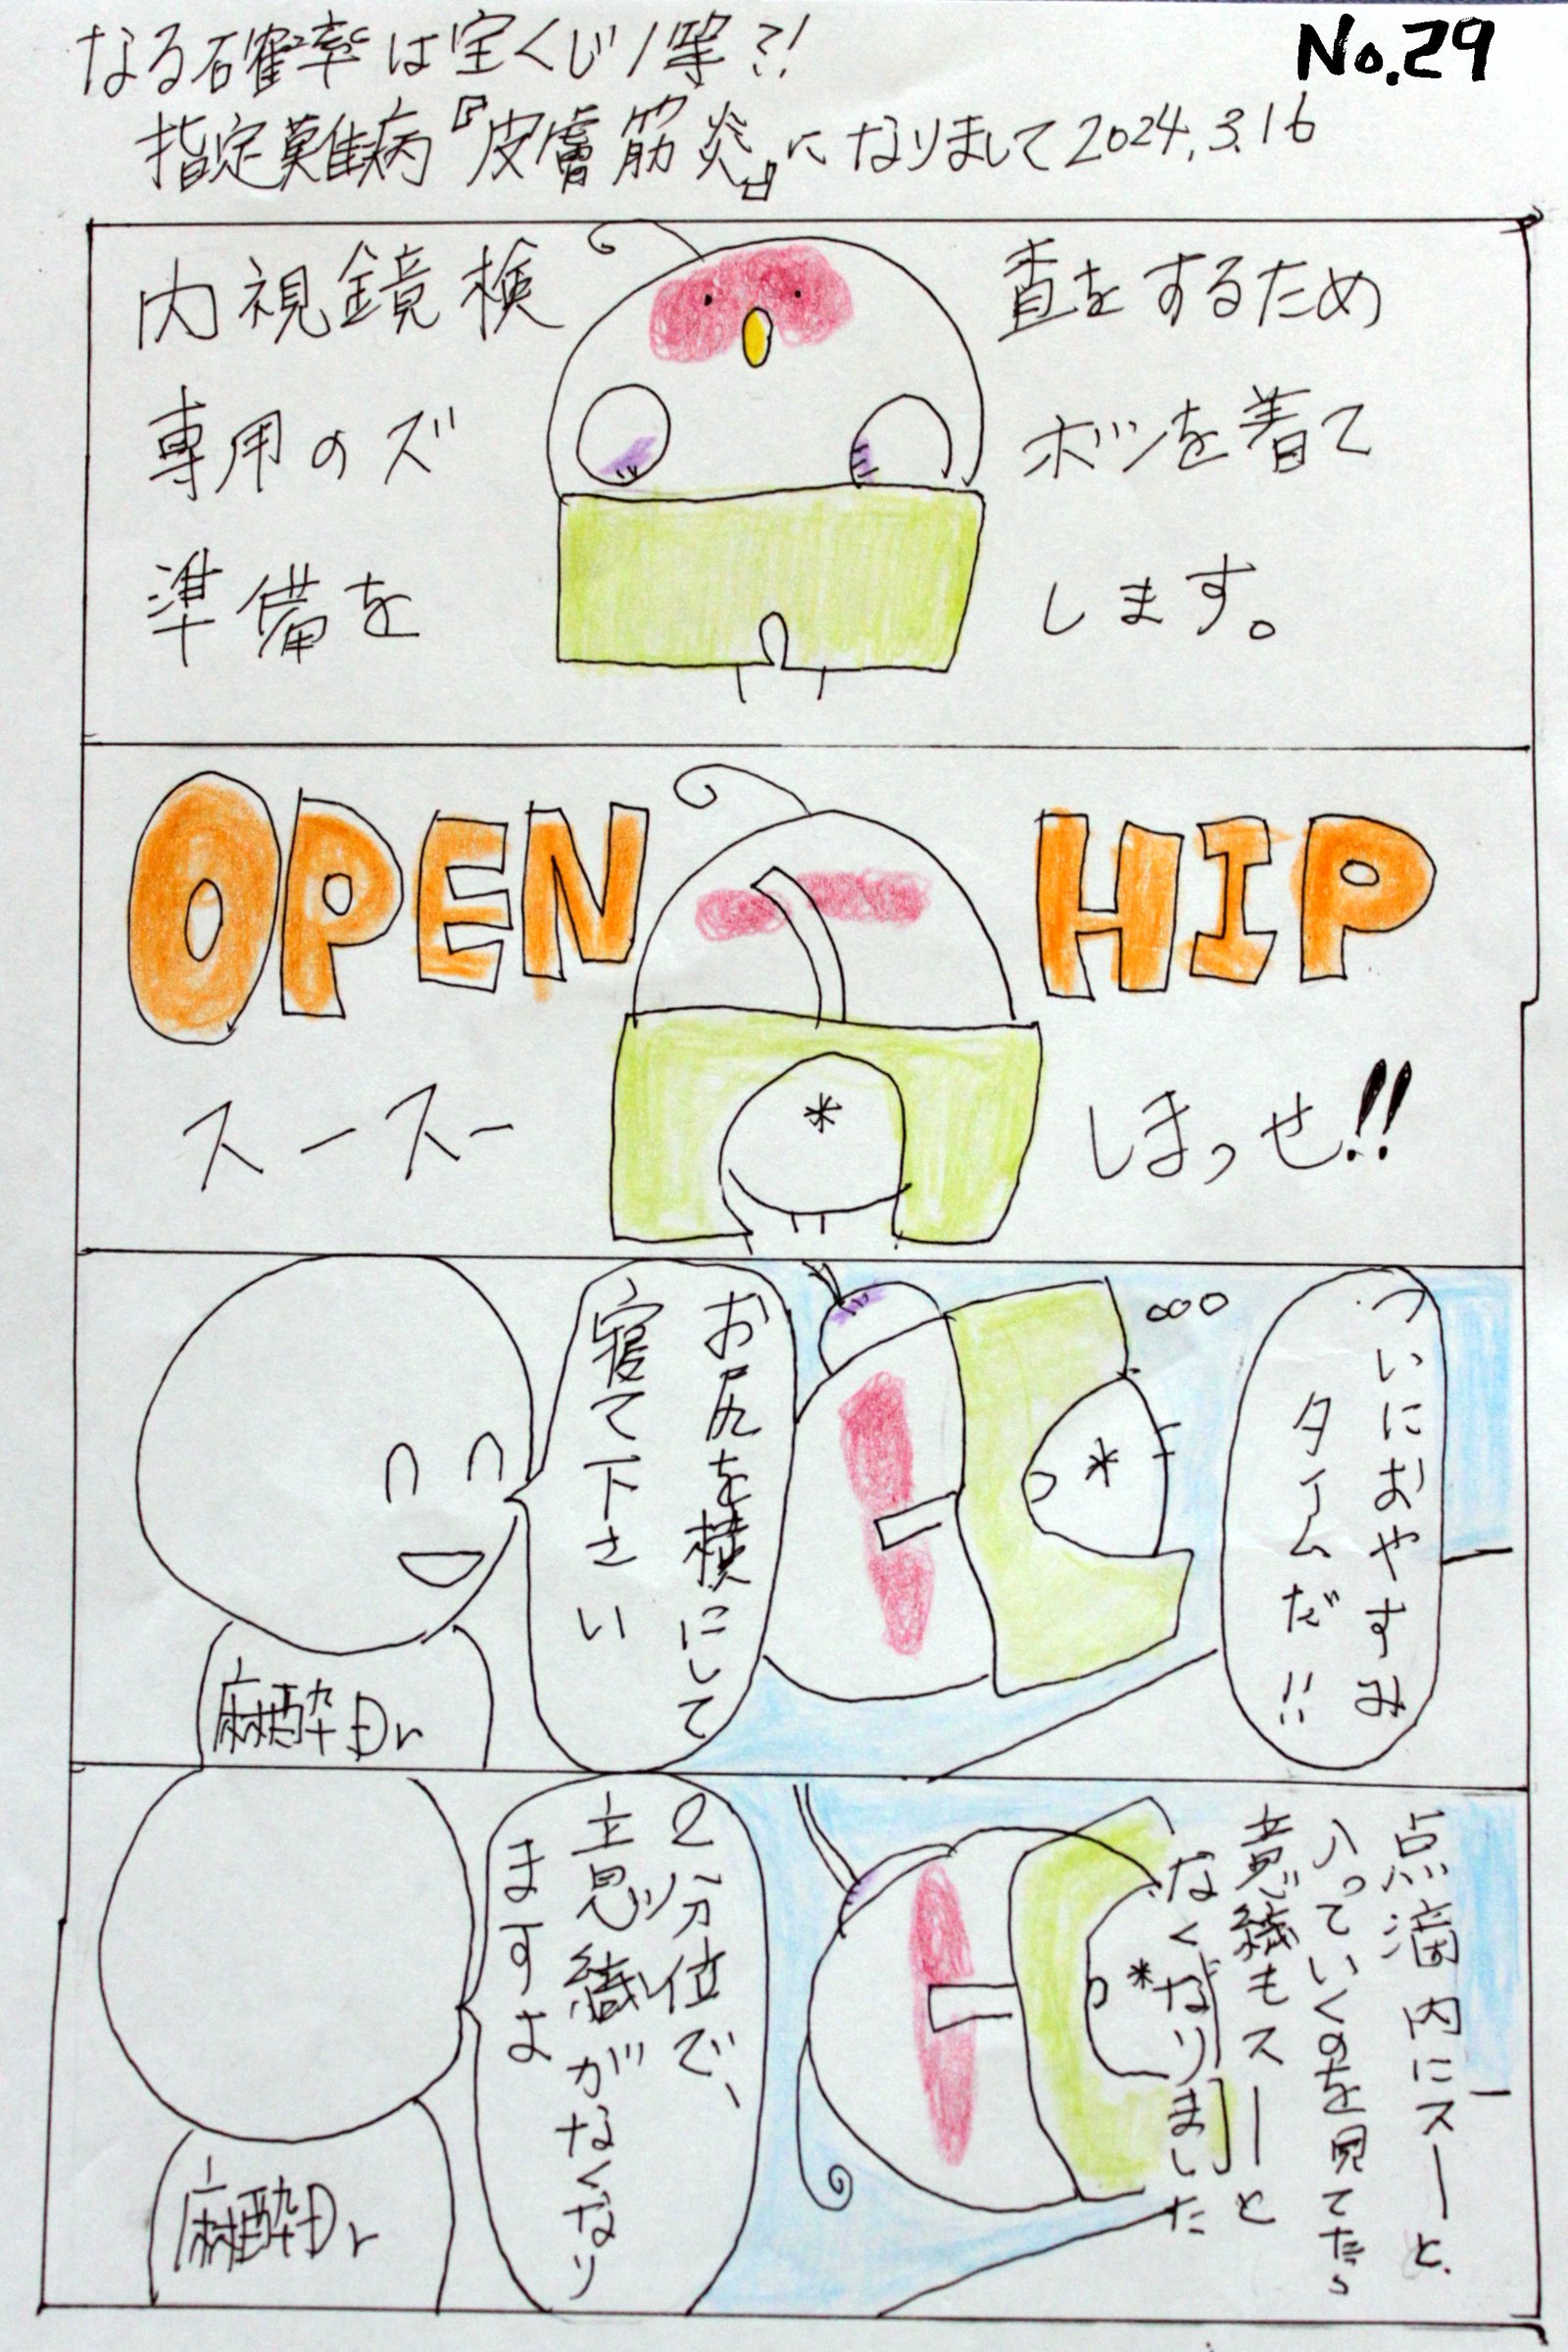 No.29
なる確率は宝くじ1等?!
指定難病『皮膚筋炎』になりまして2024.3.16
内視鏡検査をするため
専用のズボンを着て
準備をします。
OPEN HIP
スースーしまっせ!!
ついにおやすみ
タイムだ!!
お尻を横にして
寝て下さい
麻酔Dr
点滴内にスーと
入っていくのを見てたら
意識もスーと
なくなりました
2分位で、
意識がなくなり
ますよ
麻酔Dr